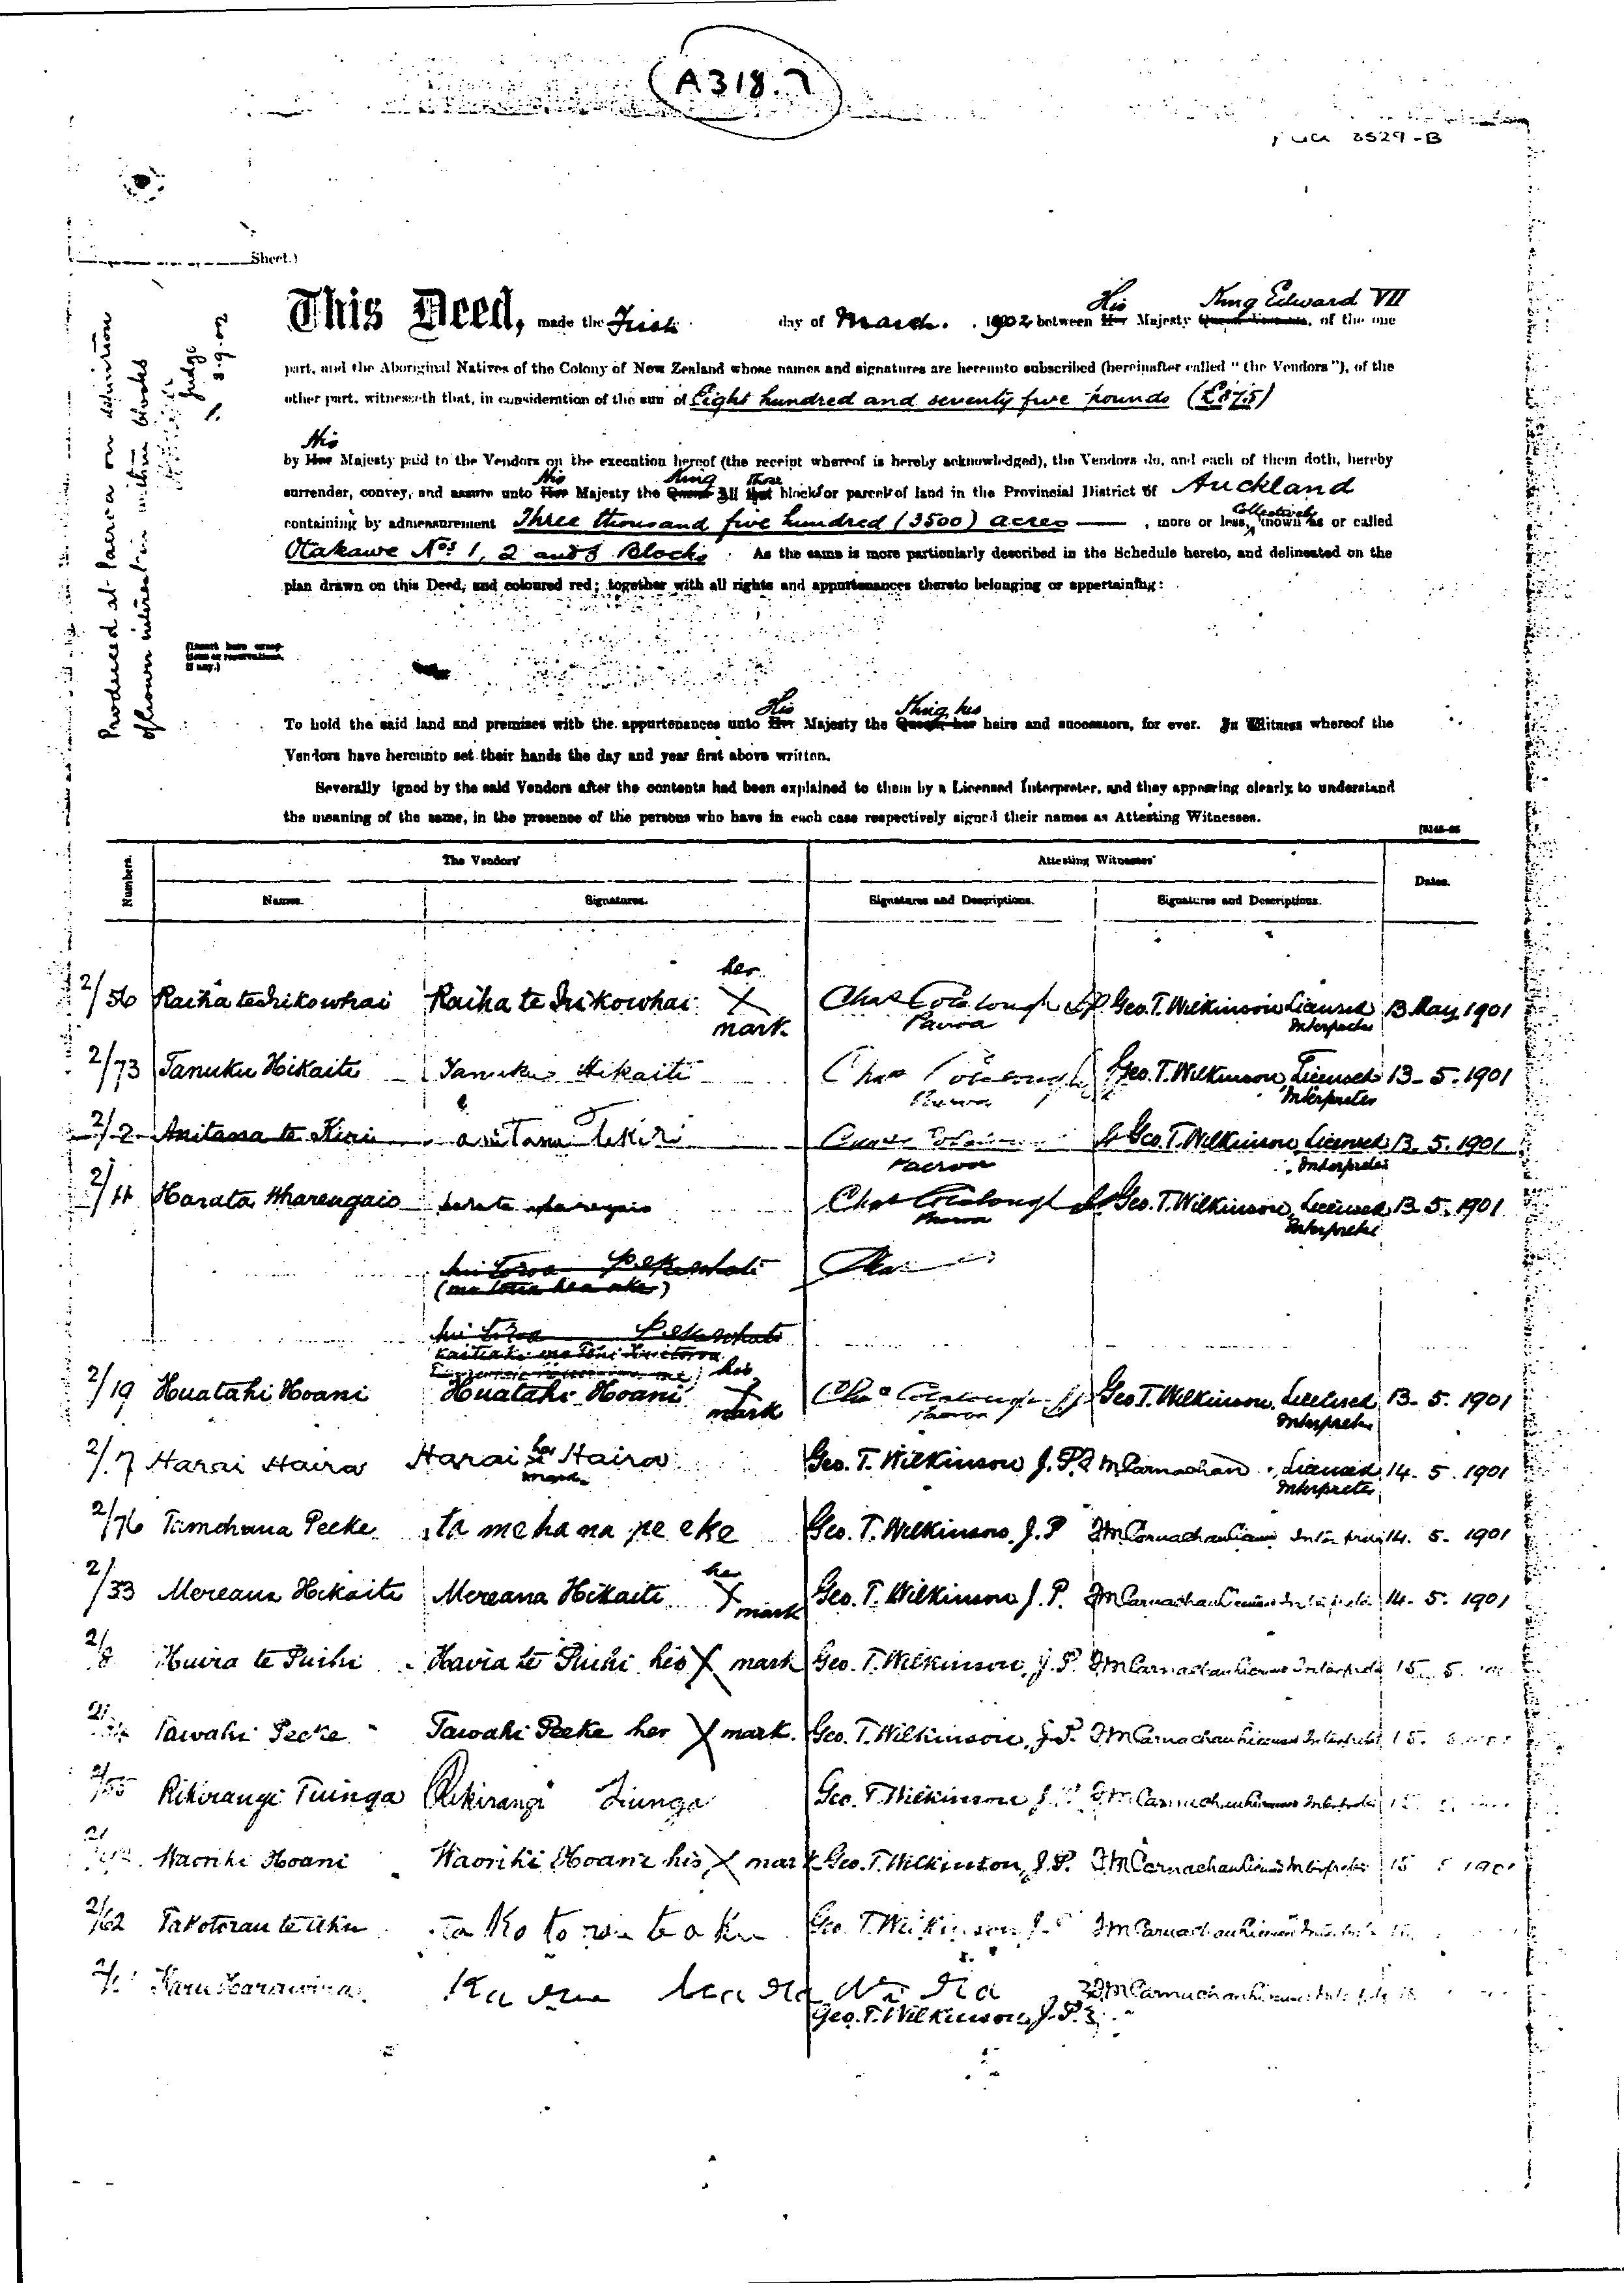 A318.
3529-B
Sheet.)
Produced at Paeroa on definition
of Crown interests in within blocks
Judge
3.9.02
His King Edward VII
This Deed, made the First day of March. 1902 between Her Majesty Queen Victoria, of the one
part, and the Aboriginal Natives of the Colony of New Zealand whose names and signatures are hereunto subscribed (hereinafter called "the Vendors"), of the
other part, witnesseth that, in consideration of the sum of Eight hundred and seventy five pounds (£875)
His
by Her Majesty paid to the Vendors on the execution hereof (the receipt whereof is hereby acknowledged), the Vendors do, and each of them doth, hereby
His King those
surrender, convey, and assure unto Her Majesty the Queen All that blocks or parcels of land in the Provincial District of Auckland
Collectively
containing by admeasurement Three thousand five hundred (3500) acres , more or less, known as or called
Otakawe Nos 1, 2 and 3 Blocks. As the same is more particularly described in the Schedule hereto, and delineated on the
plan drawn on this Deed, and coloured red; together with all rights and appurtenances thereto belonging or appertaining:
(Insert here exceptions or reservations, if any.)
His King his
To hold the said land and premises with the appurtenances unto Her Majesty the Queen, her heirs and successors, for ever. In Witness whereof the
Vendors have hereunto set their hands the day and year first above written.
Severally igned by the said Vendors after the contents had been explained to them by a Licensed Interpreter, and they appearing clearly to understand
the meaning of the same, in the presence of the persons who have in each case respectively signed their names as Attesting Witnesses.
The Vendors' Attesting Witnesses'
Numbers. Names. Signatures. Signatures and Descriptions. Signatures and Descriptions. Dates.
her
2/56 Raiha te Irikowhai Raiha te Irikowhai X Chas Coleclough JP Geo. T. Wilkinson Licensed 13 May 1901
mark Paeroa Interpreter
2/73 Tanuku Hikaite Tanuku Hikaiti Chas Coleclough Geo. T. Wilkinson, Licensed 13-5-1901
Paeroa Interpreter
2/2 Anitana te Kiri anitana te Kiri Geo. T. Wilkinson, Licensed 13. 5. 1901
Paeroa Interpreter
2/11 Harata Wharengaio harata wharengaio Chas Coleclough Geo. T. Wilkinson, Licensed 13-5-1901
Paeroa Interpreter
his
2/19 Huatahi Hoani Huatahi Hoani X Chas Coleclough JP Geo T. Wilkinson, Licensed 13. 5. 1901
mark Paeroa Interpreter
her
2/7 Harai Haira Harai X Haira Geo. T. Wilkinson J.P. J M Carnachan, Licensed 14. 5. 1901
mark Interpreter
2/76 Tamehana Peeke ta mehana pe eke Geo. T. Wilkinson, J.P J M Carnachan Licensed Interpreter 14. 5. 1901
her
2/33 Mereana Hikaite Mereana Hikaite X Geo. T. Wilkinson J.P. J M Carnachan Licensed Interpreter 14. 5. 1901
mark
2/8 Havia te Puihi Havia te Puihi his X mark Geo. T. Wilkinson, J.P. J M Carnachan Licensed Interpreter 15. 5.
2/ Tawahi Peeke Tawahi Peeke her X mark. Geo. T. Wilkinson, J.P. J M Carnachan Licensed Interpreter 15.
2/55 Rikirangi Tuinga Rikirangi Tiunga Geo. T. Wilkinson J.P. J M Carnachan Licensed Interpreter 15.
2/ Waorihi Hoani Waorihi Hoani his X mark Geo. T. Wilkinson, J.P. J M Carnachan Licensed Interpreter 15 5 1901
2/62 Takotorau te Aku ta Ko to rau te a Ku Geo. T. Wilkinson J.P J M Carnachan Licensed
2/ Karu Harawira Karu harawira J M Carnachan Licensed
Geo. T. Wilkinson, J.P.